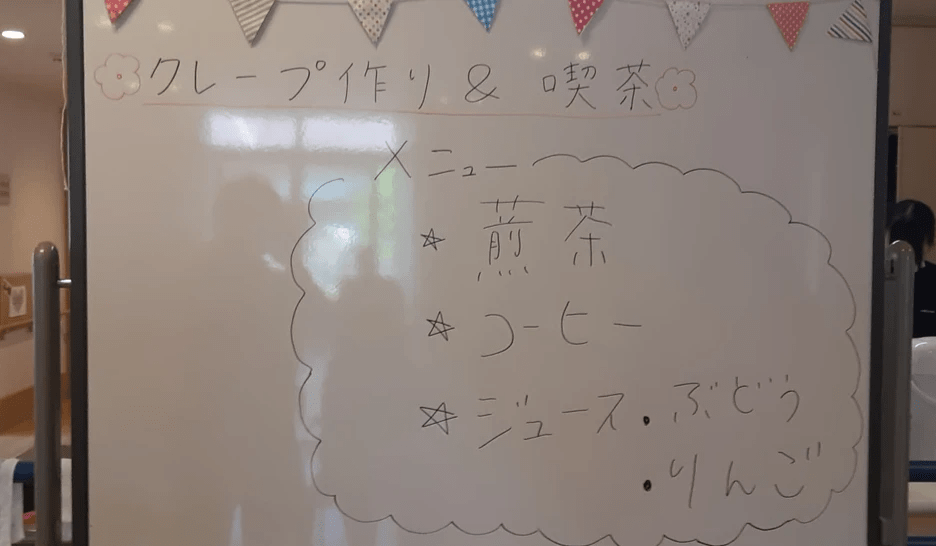 クレープ作り & 喫茶
メニュー
☆ 煎茶
☆ コーヒー
☆ ジュース・ぶどう
・りんご